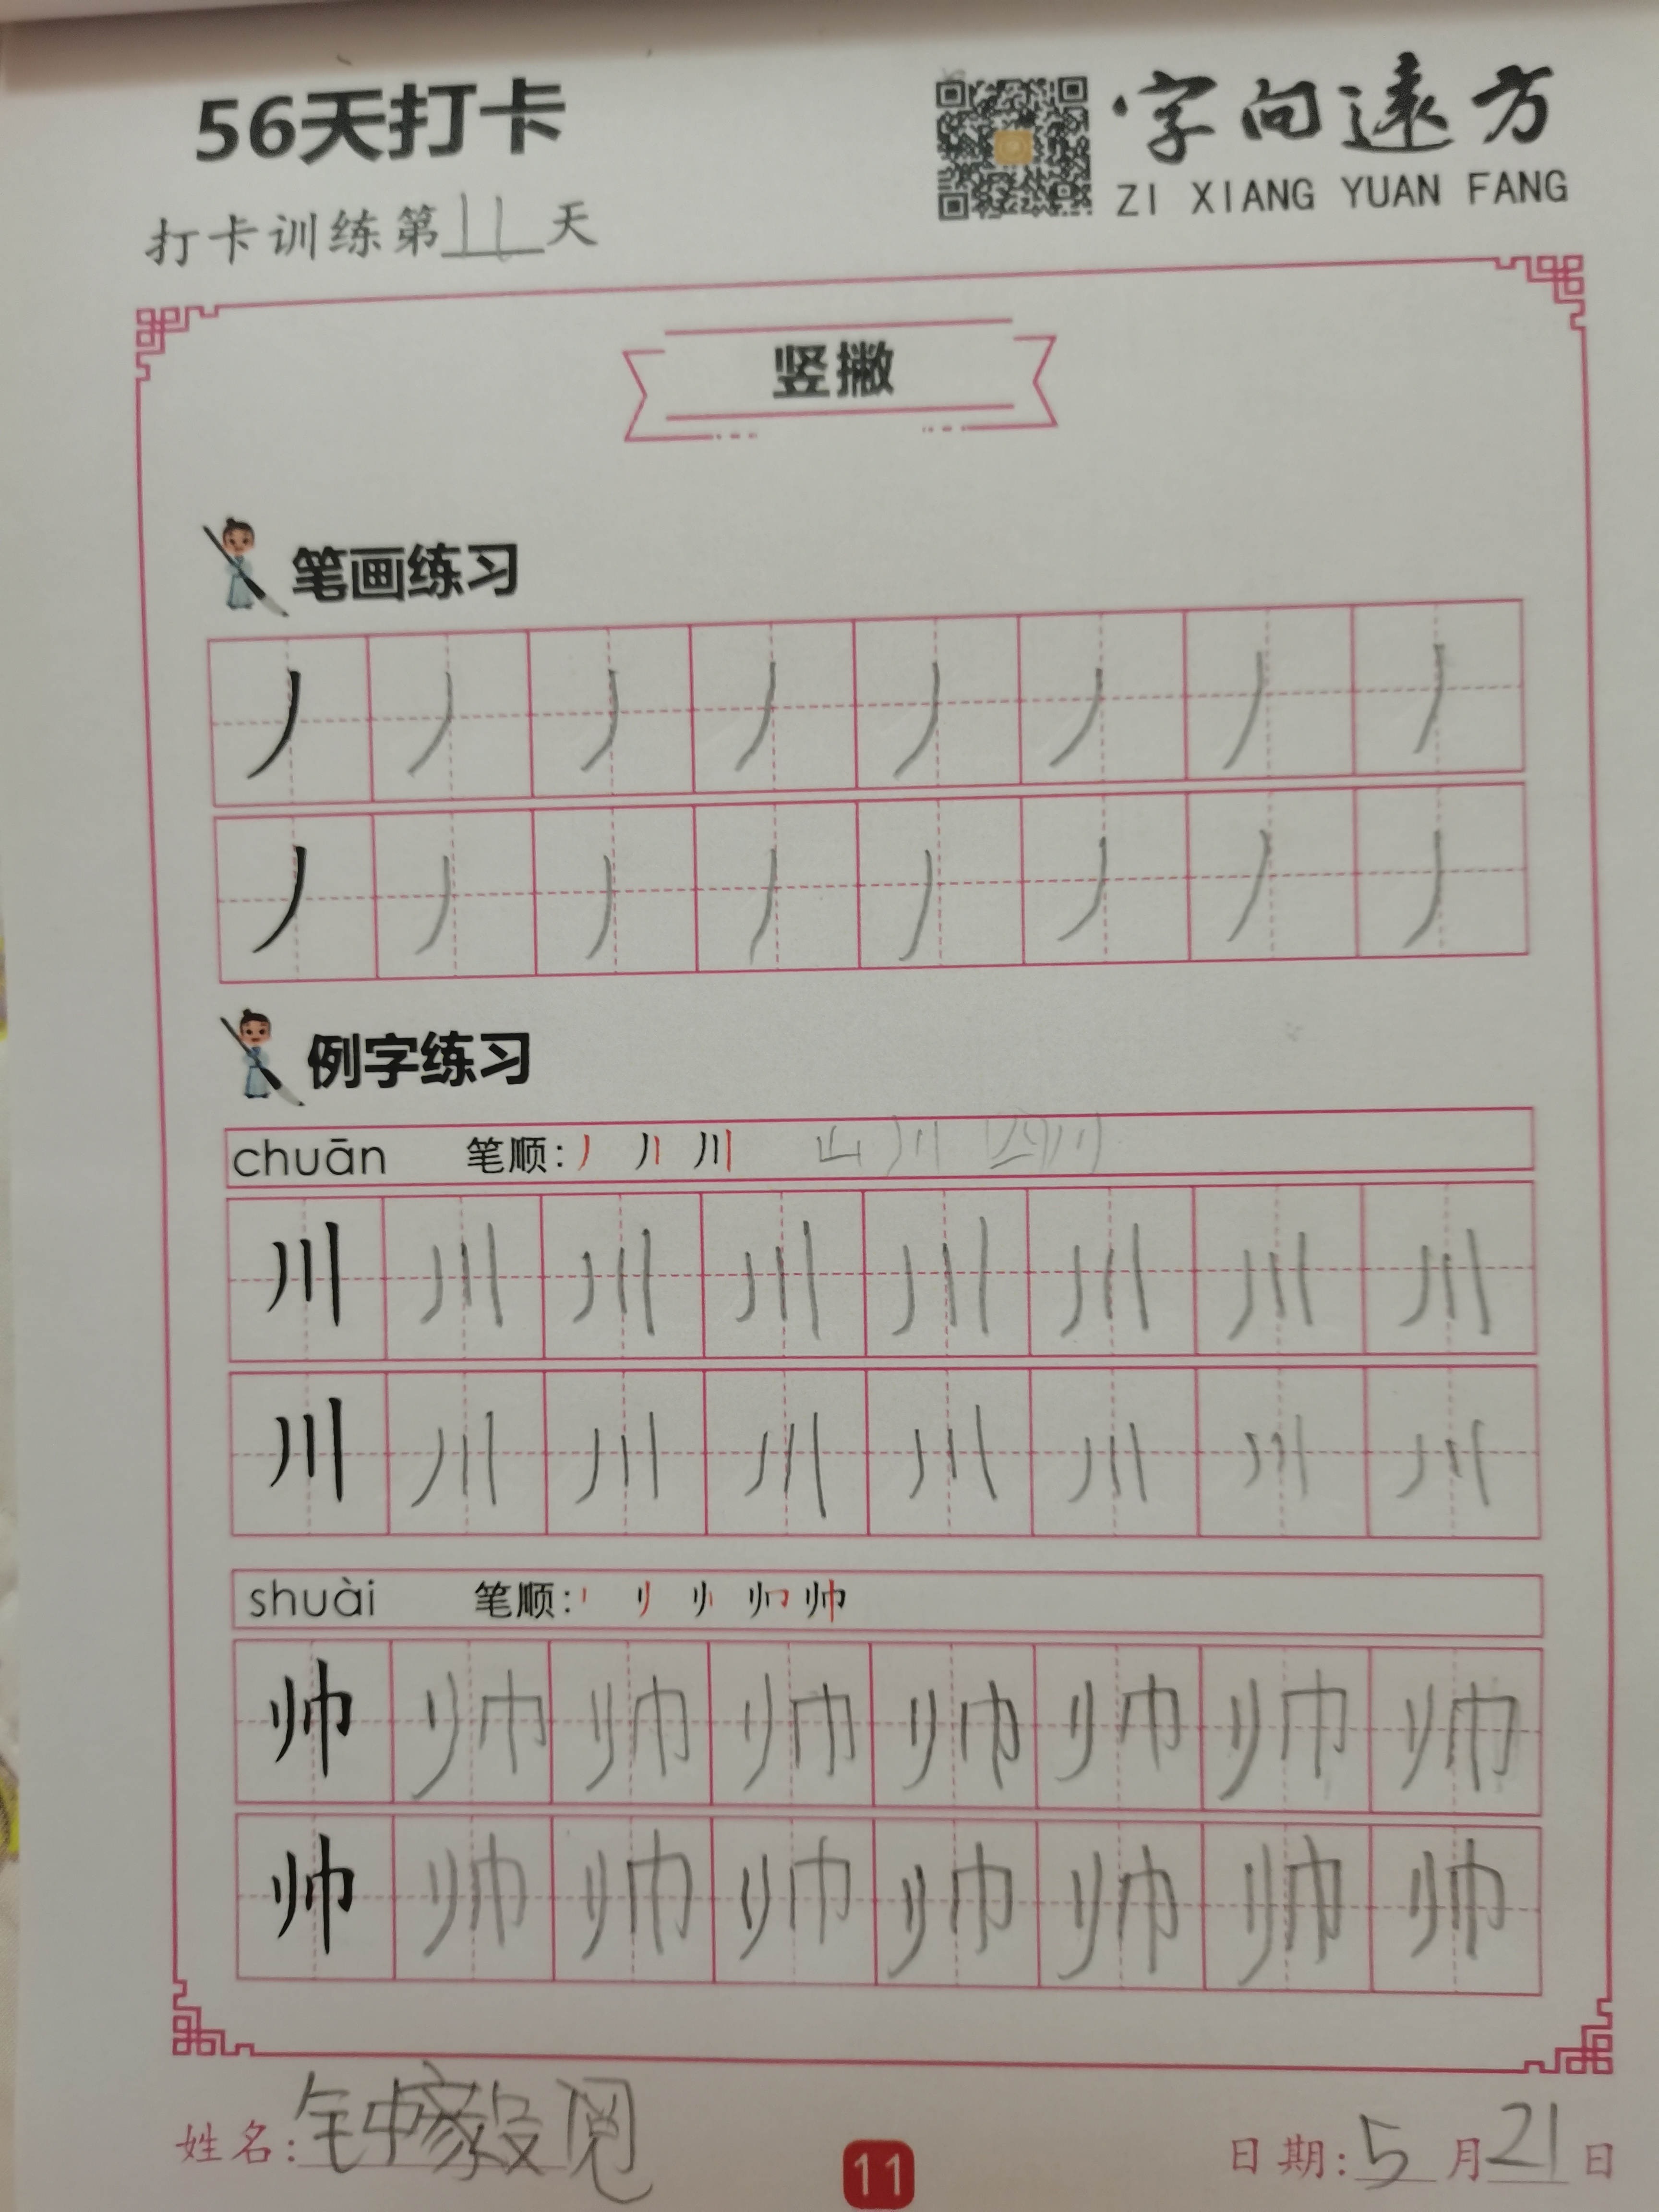 56天打卡
字向遠方
ZI XIANG YUAN FANG
打卡训练第11天
竖撇
笔画练习
丿丿丿丿丿丿丿丿
丿丿丿丿丿丿丿丿
例字练习
chuān 笔顺: 山川 四川
川川川川川川川川
川川川川川川川川
shuài 笔顺:
帅帅帅帅帅帅帅帅
帅帅帅帅帅帅帅帅
姓名: 钟家毅
11
日期: 5月21日